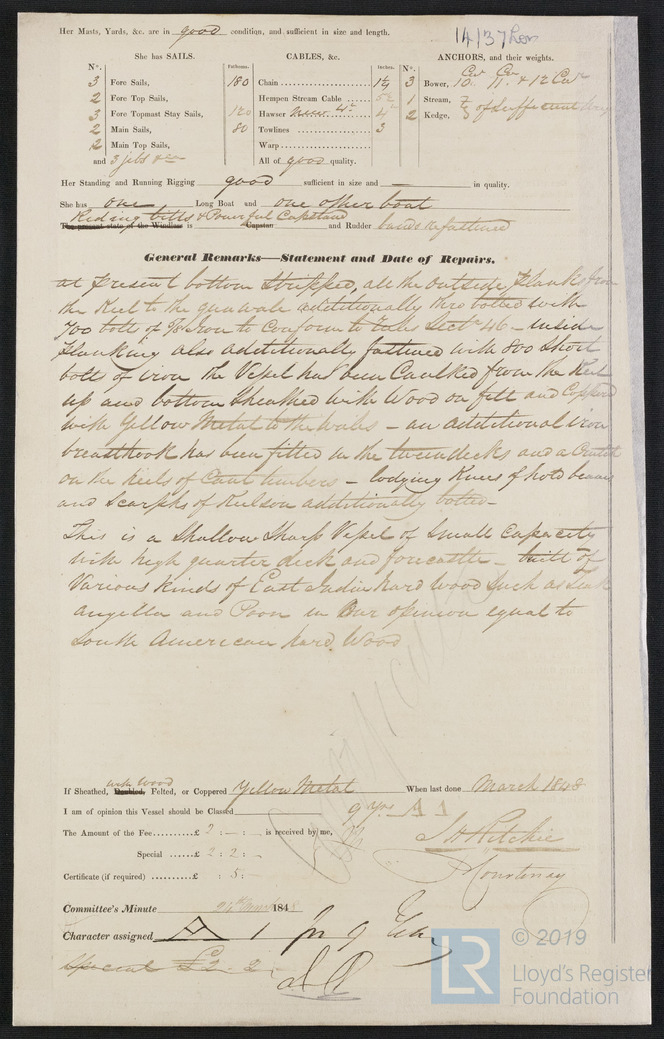 Her Masts, Yards, &c. are in good condition, and sufficient in size and length.
14137 Lon
She has SAILS.
CABLES, &c.
ANCHORS, and their weights.
N°.
3 Fore Sails,
2 Fore Top Sails,
3 Fore Topmast Stay Sails,
2 Main Sails,
2 Main Top Sails,
and 3 jibs &c
Fathoms.
Inches.
Chain 180 1 1/4
Hempen Stream Cable
Hawser 120 4
Towlines 80 3
Warp
All of good quality.
N°.
3 Bower, 10 Cwt 11 Cwt & 12 Cwt
1 Stream,
2 Kedge, of sufficient
Her Standing and Running Rigging good sufficient in size and — in quality.
She has one Long Boat and one other boat
Riding bitts & Powerful Capstand
The present state of the Windlass is Capstan and Rudder bands refastened
General Remarks—Statement and Date of Repairs.
at present bottom stripped, all the outside planks from
the Keel to the gunwale additionally thro bolted with
700 bolts of 7/8 Iron to Conform to Rules Sectn 46 – inside
planking also additionally fastened with 800 Short
bolts of iron the Vessel has been Caulked from the Keel
up and bottom Sheathed with Wood on felt and Coppered
with Yellow Metal to the wales – an additional iron
breasthook has been fitted in the tweendecks and a Crutch
on the heels of Cant timbers – lodging Knees of hold beams
and Scarphs of Keelson additionally bolted –
This is a Shallow Sharp Vessel of Small Capacity
with high quarter deck and forecastle – built of
Various kinds of East India hard wood Such as Teak
Angella and Poon in Our opinion equal to
South American hard Wood
If Sheathed, with Wood Doubled, Felted, or Coppered Yellow Metal When last done March 1848
I am of opinion this Vessel should be Classed 9 Yrs A 1
The Amount of the Fee £ 2 : – : – is received by me,
Special £ 2 : 2 : –
J H Ritchie
Certificate (if required) £ : 5 : –
Courtenay
Committee's Minute 184
Character assigned A 1 for 9
Special £2 . 2
© 2019
LR
Lloyd's Register
Foundation